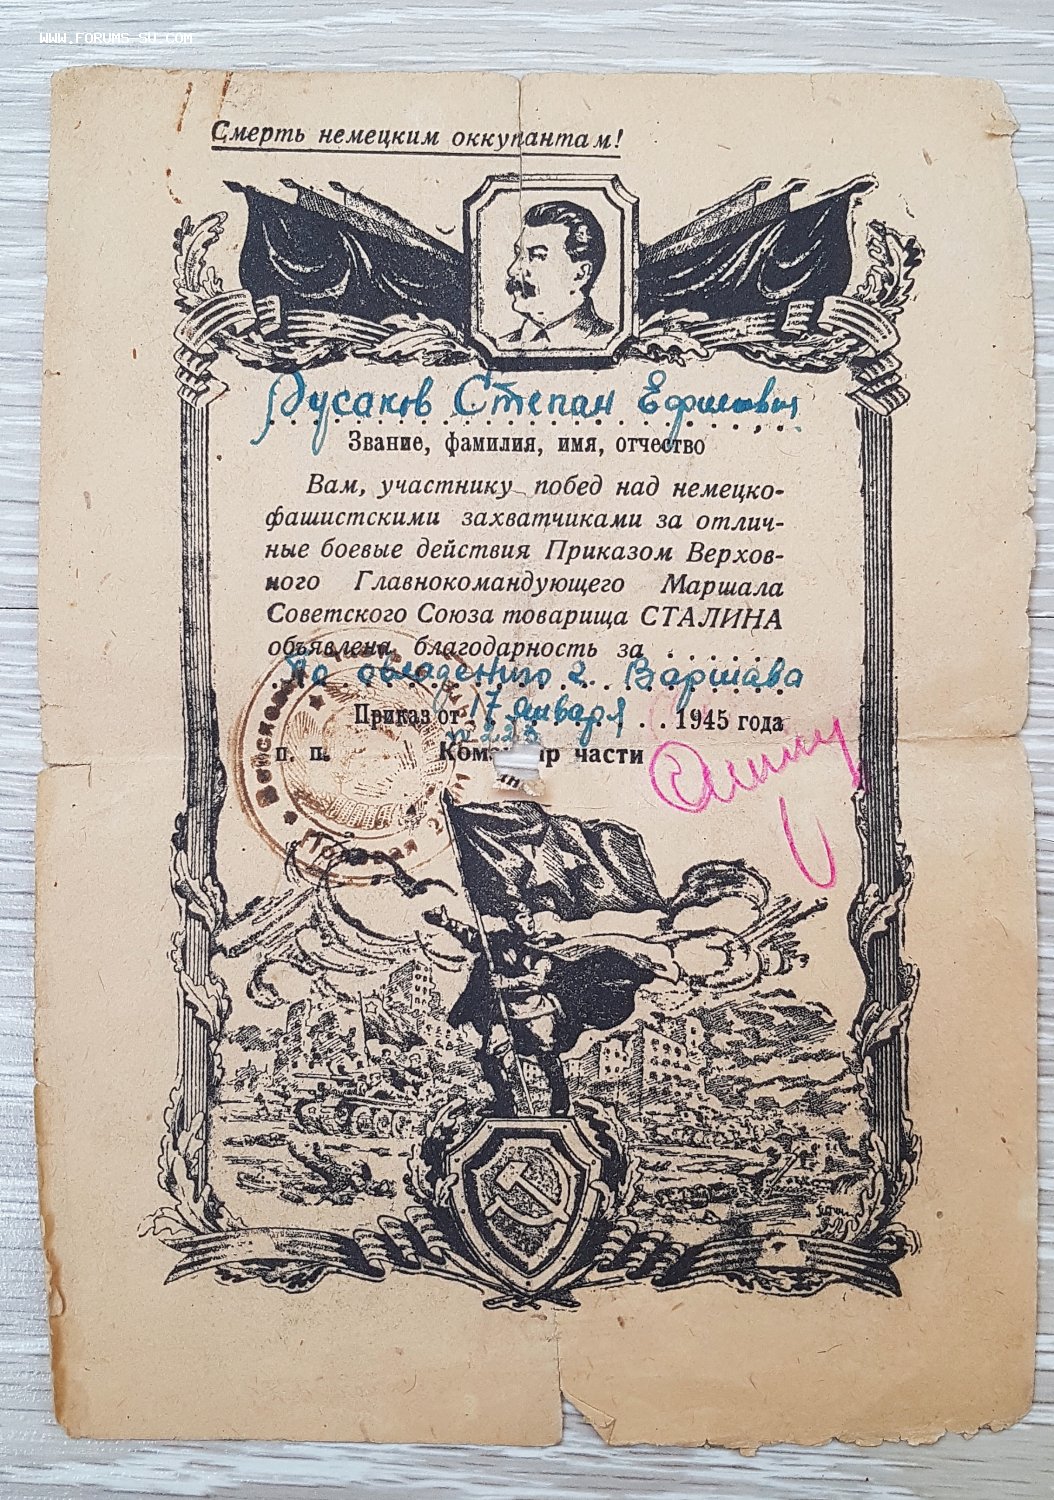 WWW.FORUMS-SU.COM
Смерть немецким оккупантам!
Русаков Степан Ефимович
Звание, фамилия, имя, отчество
Вам, участнику побед над немецко-
фашистскими захватчиками за отлич-
ные боевые действия Приказом Верхов-
ного Главнокомандующего Маршала
Советского Союза товарища СТАЛИНА
объявлена благодарность за . . . . . .
По овладению г. Варшава
Приказ от 17 января 1945 года
№ 223
п. п. Командир части
Войсковая часть
Полевая